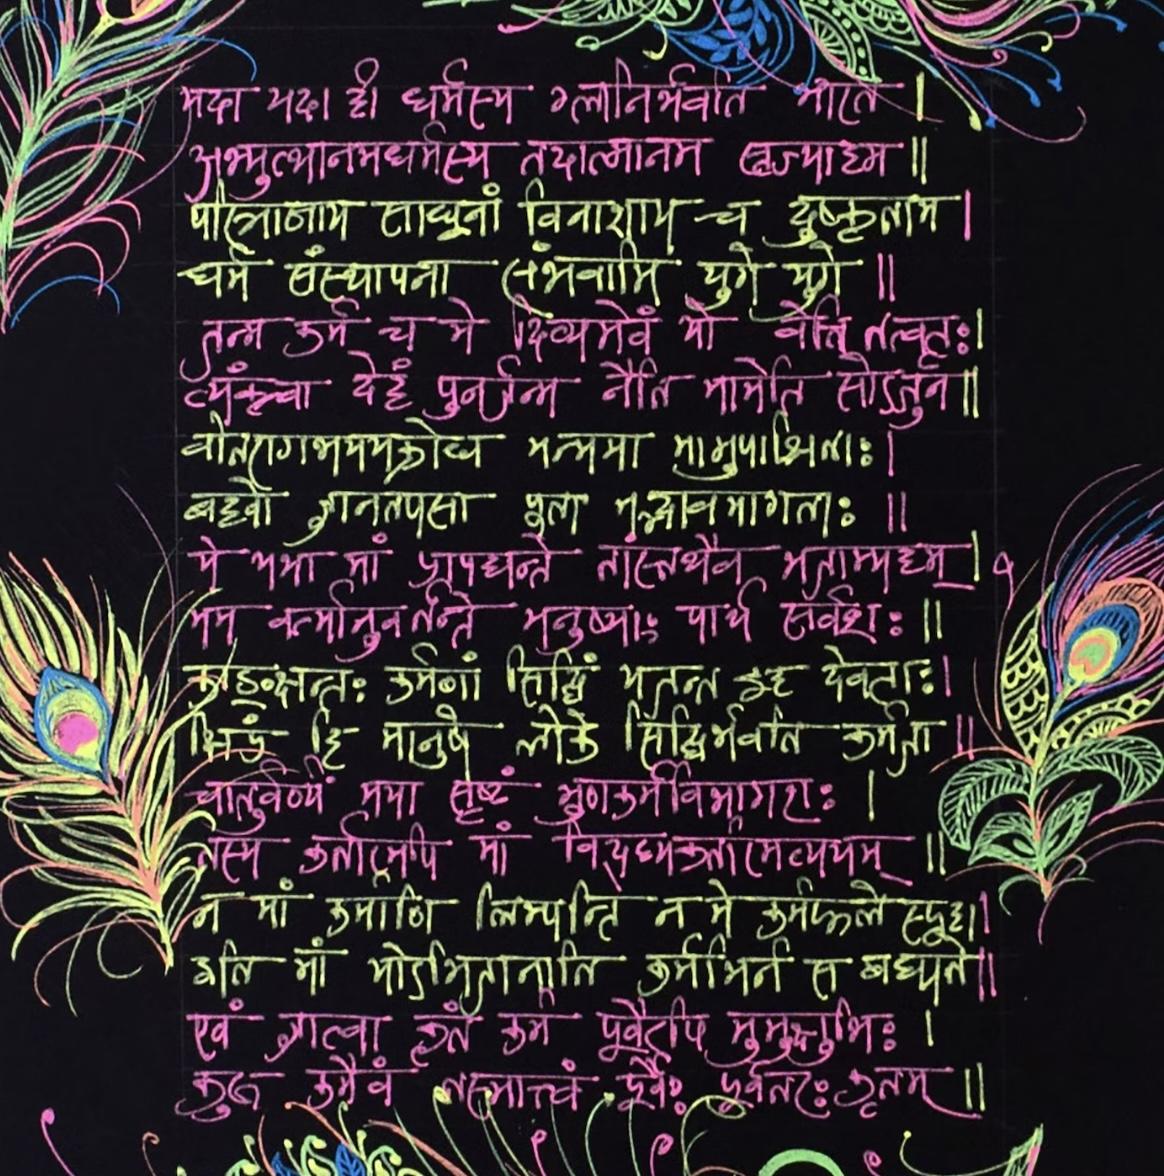 यदा यदा ही धर्मस्य ग्लानिर्भवति भारते |
अभ्युत्थानमधर्मस्य तदात्मानम सृज्याहम ||
परित्राणाय साधूनां विनाशाय च दुष्कृताम |
धर्म संस्थापना संभवामि युगे युगे ||
जन्म कर्म च मे दिव्यमेवं यो वेत्ति तत्वतः |
त्यक्त्वा देहं पुनर्जन्म नैति मामेति सोऽर्जुन ||
वीतरागभयमक्रोध मन्मया मामुपाश्रिताः |
बहवो ज्ञानतपसा पूता मद्भावमागताः ||
ये यथा मां प्रापद्यन्ते तांस्तथैव भजाम्यहम् |
मम वर्त्मानुवर्तन्ते मनुष्याः पार्थ सर्वशः ||
काङ्क्षन्तः कर्मणां सिद्धिं भजन्त इह देवताः |
क्षिप्रं हि मानुषे लोके सिद्धिर्भवति कर्मजा ||
चातुर्वर्ण्यं मया सृष्टं गुणकर्मविभागशः |
तस्य कर्तारमपि मां विद्ध्यकर्तारमव्ययम् ||
न मां कर्माणि लिम्पन्ति न मे कर्मफले स्पृहा |
इति मां योऽभिजानाति कर्मभिर्न स बध्यते ||
एवं ज्ञात्वा कृतं कर्म पूर्वैरपि मुमुक्षुभिः |
कुरु कर्मैवं तस्मात्त्वं पूर्वैः पूर्वतरः कृतम् ||